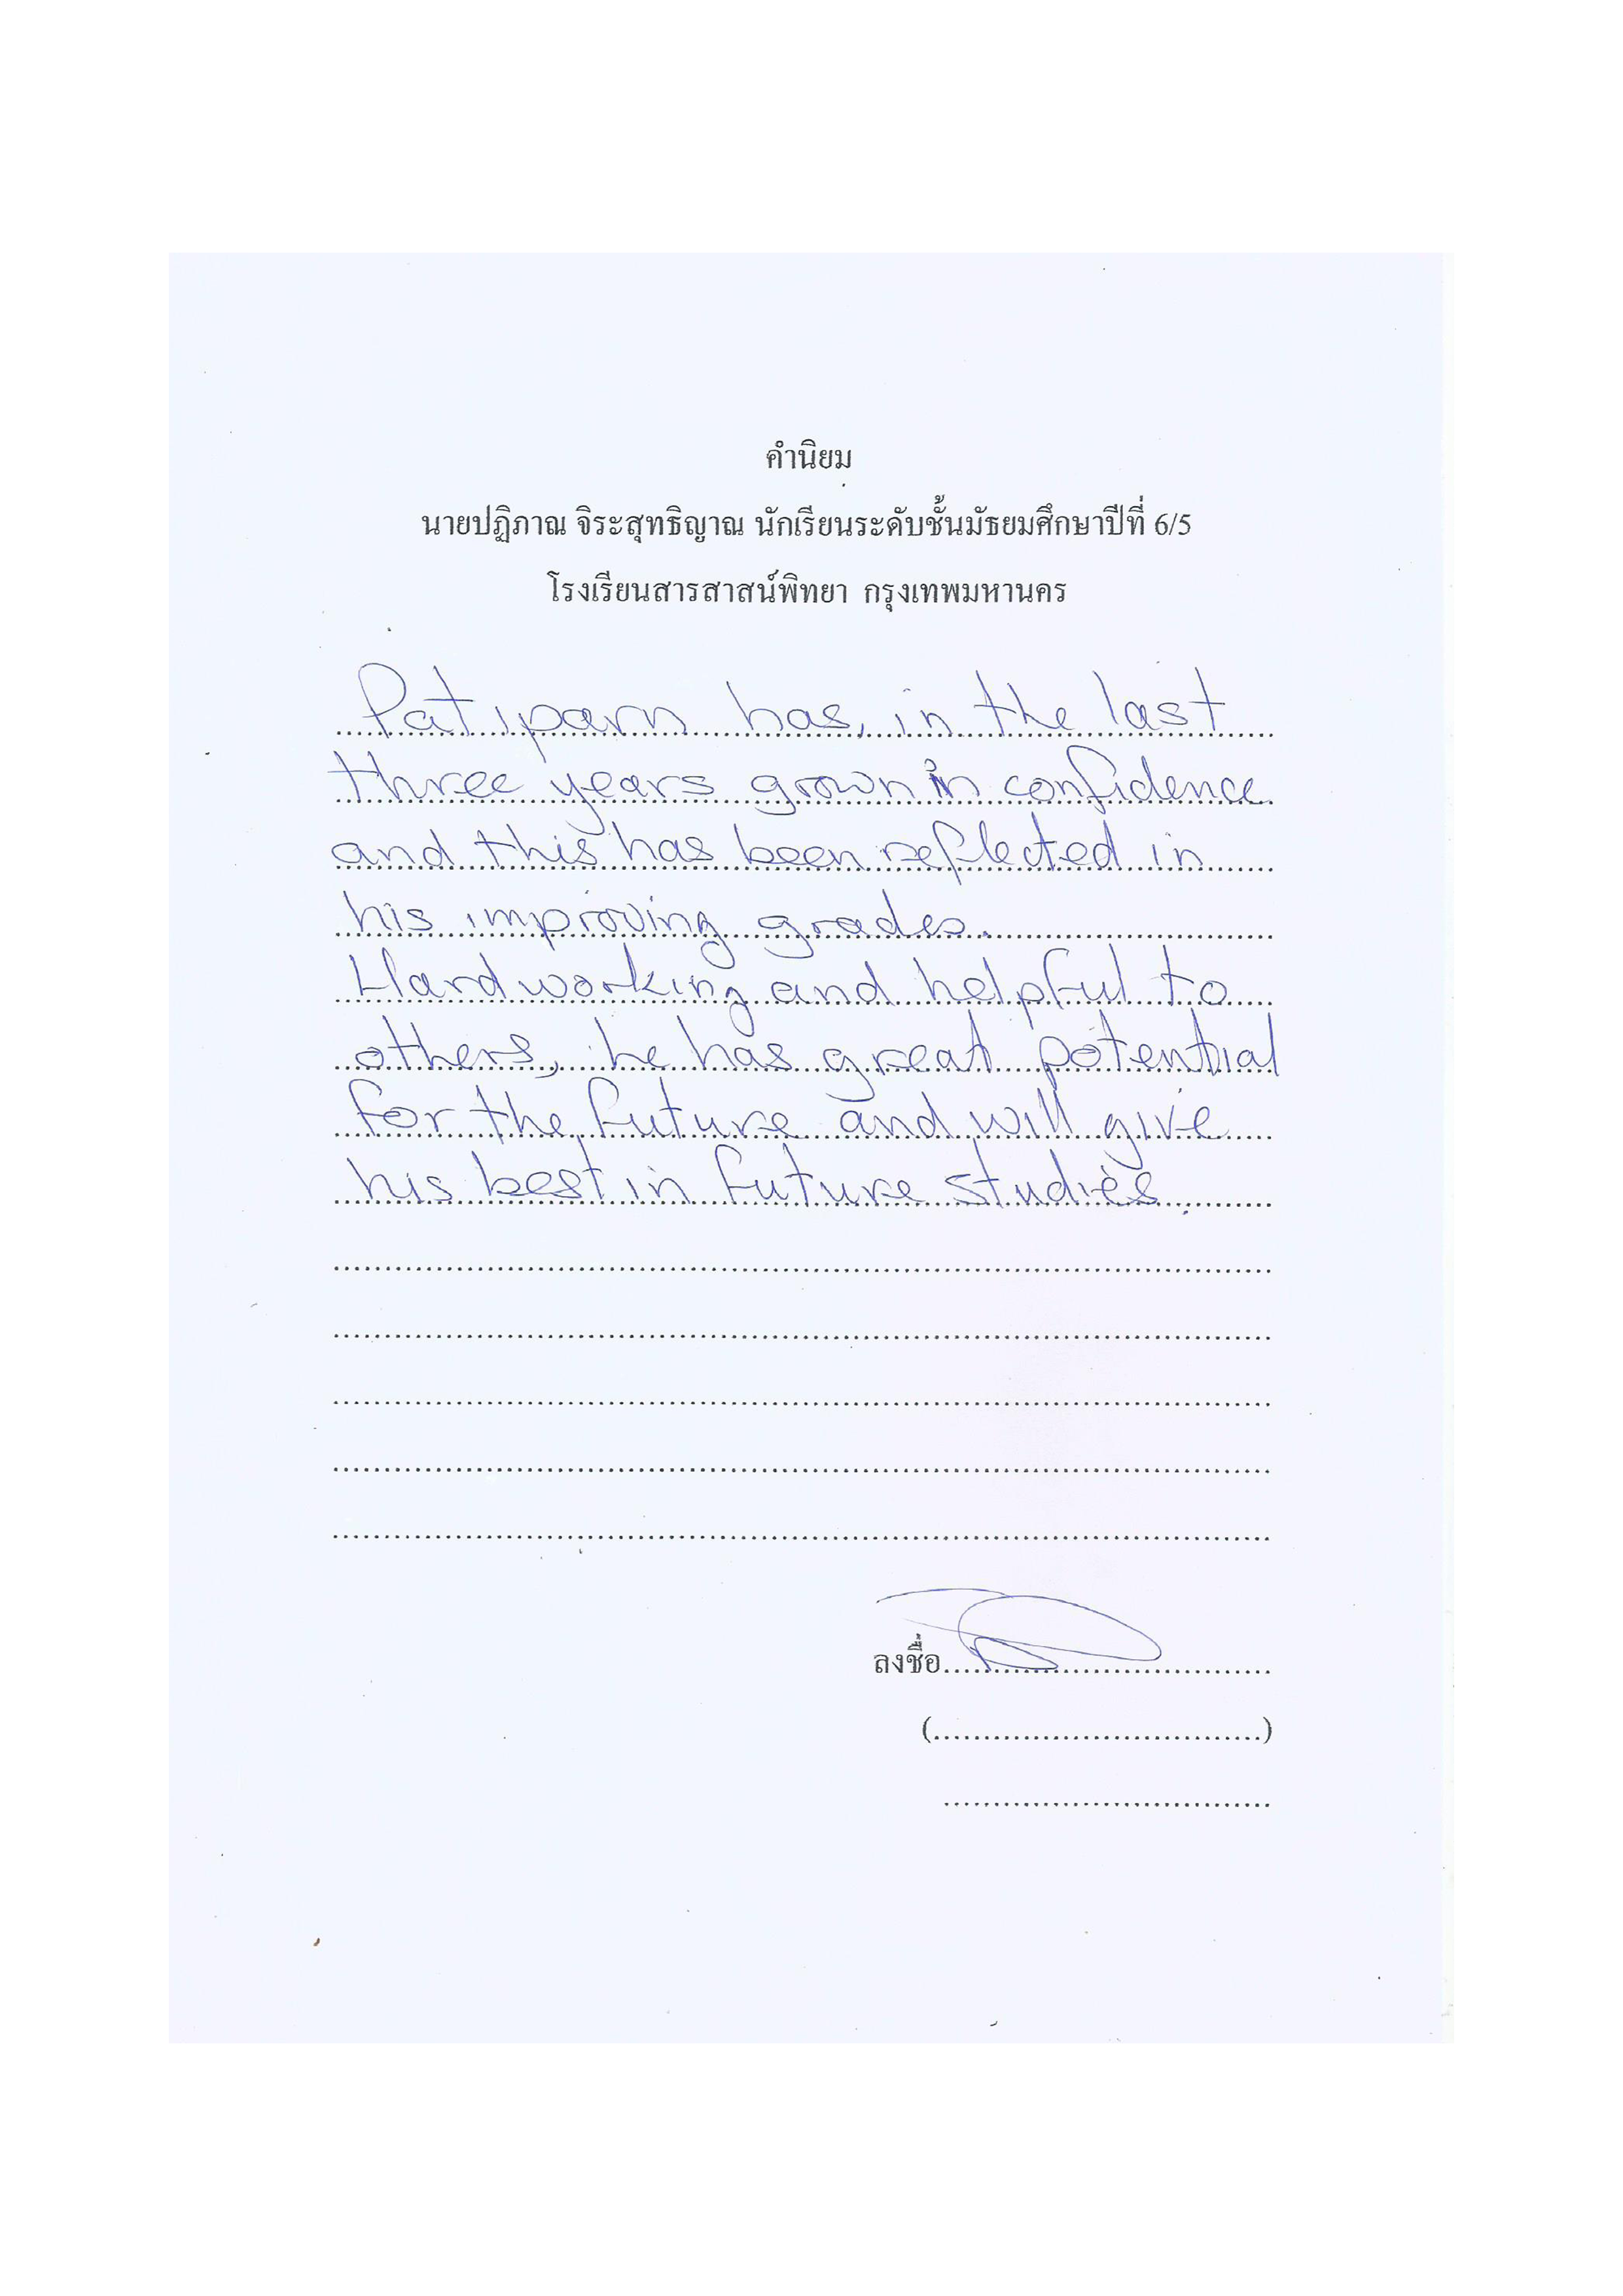 คำนิยม
นายปฏิภาณ จิระสุทธิญาณ นักเรียนระดับชั้นมัธยมศึกษาปีที่ 6/5
โรงเรียนสารสาสน์พิทยา กรุงเทพมหานคร
Patiparn has, in the last
three years grown in confidence
and this has been reflected in
his improving grades.
Hardworking and helpful to
others, he has great potential
for the future and will give
his best in future studies.
ลงชื่อ